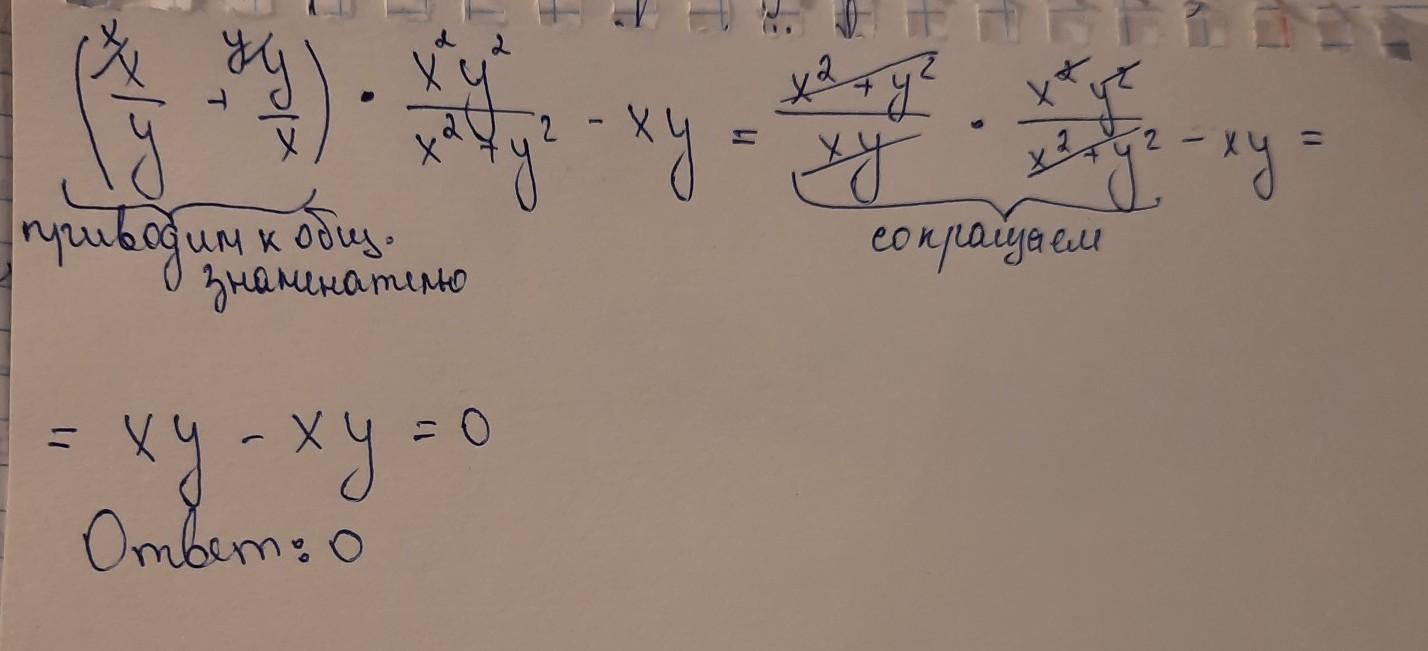 (x/y + y/x) · x²y²/x²+y² - xy = x²+y²/xy · x²y²/x²+y² - xy =
приводим к общ.
знаменателю
сокращаем
= xy - xy = 0
Ответ: 0